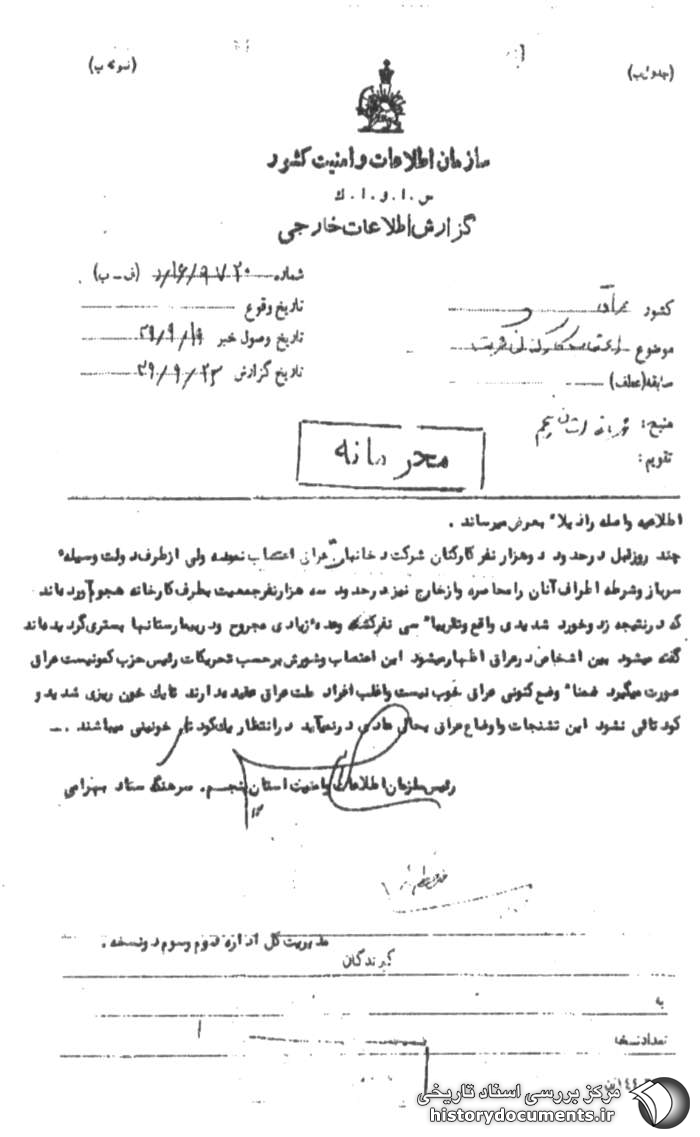 (جدول ب)
(نمونه ب)
سازمان اطلاعات و امنیت کشور
س . ا . و . ا . ك
گزارش اطلاعات خارجی
شماره (ف ـ ب)
تاریخ وقوع
تاریخ وصول خبر ۳۹/۹/۱۹
تاریخ گزارش ۳۹/۹/۲۳
کشور عراق
موضوع
سابقه (عطف)
منبع:
تقویم:
محرمانه
اطلاعیه واصله را ذیلا" بعرض میرساند .
چند روز قبل در حدود دو هزار نفر کارکنان شرکت دخانیات عراق اعتصاب نموده ولی از طرف دولت وسیله
سرباز و شرطه اطراف آنان را محاصره و از خارج نیز در حدود سه هزار نفر جمعیت بطرف کارخانه هجوم آورده اند
که در نتیجه زد و خورد شدیدی واقع و تقریبا" سی نفر کشته و عده زیادی مجروح و در بیمارستانها بستری گردیده اند
گفته میشود بین اشخاص در عراق اظهار میشود این اعتصاب و شورش بر حسب تحریکات رئیس حزب کمونیست عراق
صورت میگیرد ضمنا" وضع کنونی عراق خوب نیست و اغلب افراد ملت عراق عقیده دارند تا یك خون ریزی شدید و
کودتائی نشود این تشنجات و اوضاع عراق بحال عادی در نمیآید در انتظار یك کودتای خونینی میباشند . ـ
رئیس سازمان اطلاعات و امنیت استان پنجم . سرهنگ ستاد بهرامی
مدیریت کل اداره دوم و سوم دو نسخه .
گیرندگان
به
تعداد نسخه
۱
مرکز بررسی اسناد تاریخی
historydocuments.ir